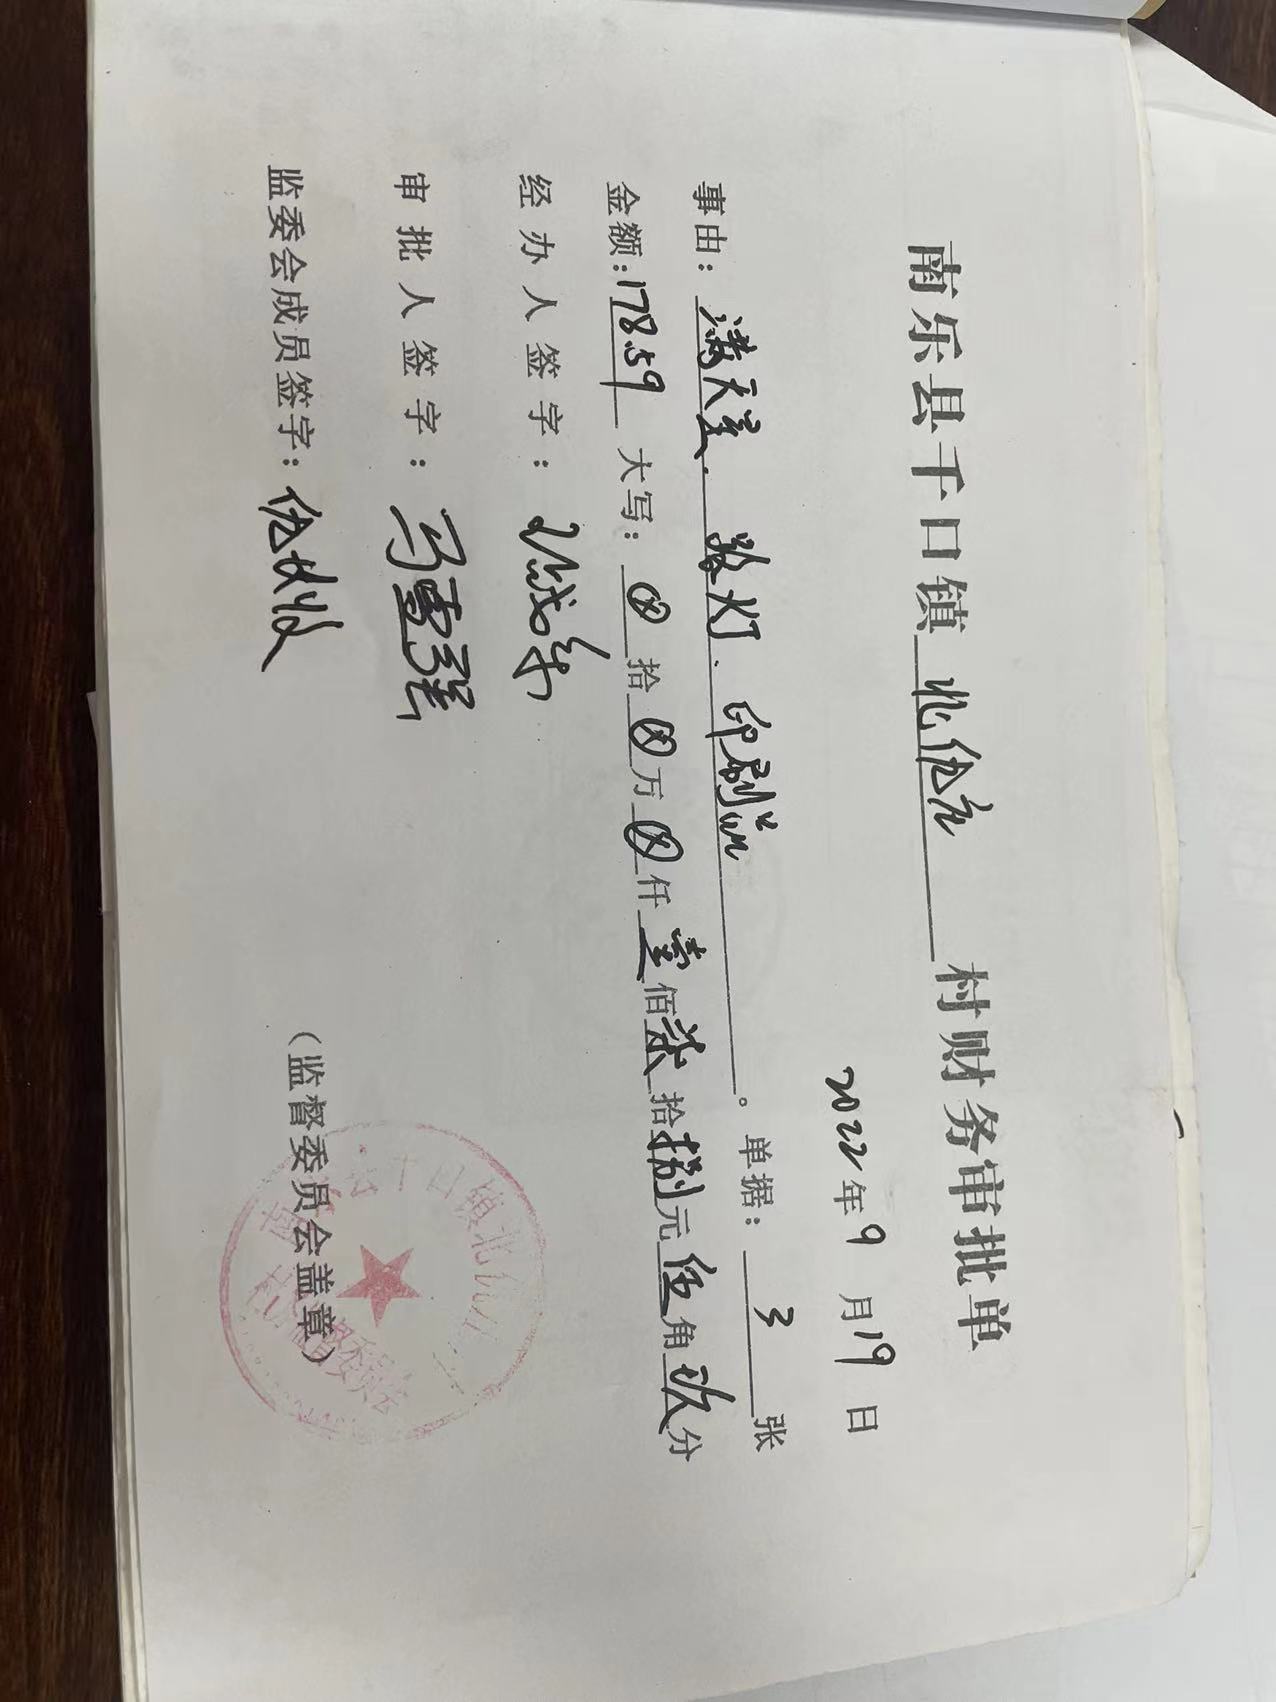 南乐县千口镇 北伍庄 村财务审批单
2022年9月19日
事由：满天星、路灯、印刷品。单据：3张
金额：178.59 大写：⊗拾⊗万⊗仟壹佰柒拾捌元伍角玖分
经办人签字：
审批人签字：马雪强
监委会成员签字：
（监督委员会盖章）